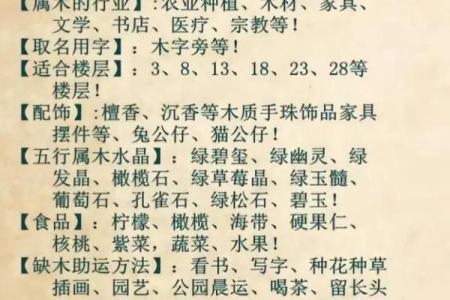 【属木的行业】:农业种植、木材、家具、
文学、书店、医疗、宗教等!
【取名用字】:木字旁等!
【适合楼层】:3、8、13、18、23、28等
楼层!
【配饰】:檀香、沉香等木质手珠饰品家具
摆件等、兔公仔、猫公仔!
【五行属木水晶】:绿碧玺、绿幽灵、绿
发晶、橄榄石、绿草莓晶、绿玉髓、
葡萄石、孔雀石、绿松石、碧玉!
【食品】:柠檬、橄榄、海带、硬果仁、
核桃、紫菜,蔬菜、水果!
【缺木助运方法】:看书、写字、种花种草
插画、园艺、公园晨运、喝茶、留长头